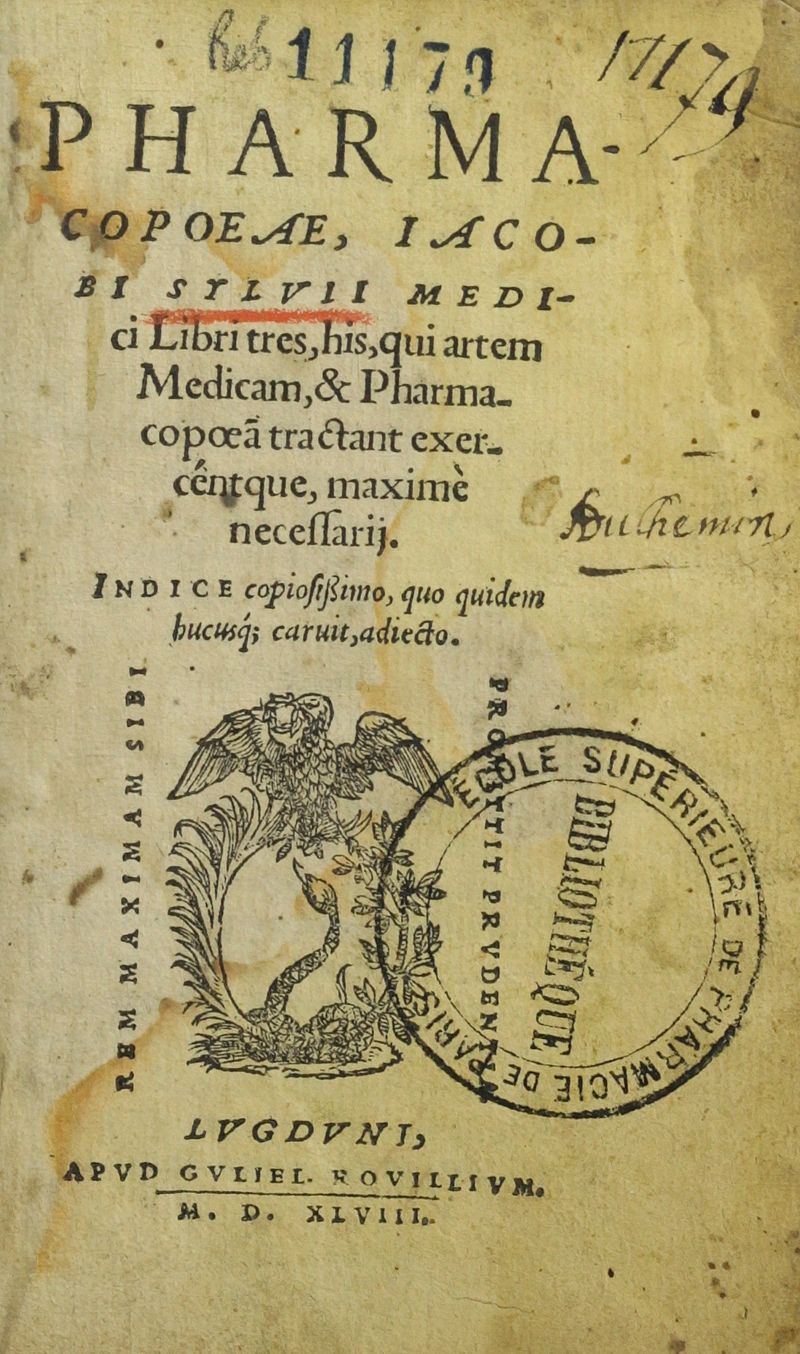 11179
PHARMA-
COPOEAE, IACO-
BI SYLVII MEDI-
ci Libri tres, his, qui artem
Medicam, & Pharma-
copœā tractant exer-
céntque, maximè
necessarij.
INDICE copiosissimo, quo quidem
hucusq́; caruit, adiecto.
REM MAXIMAM SIBI
PROMITTIT PRVDENTIA
ÉCOLE SUPÉRIEURE DE PHARMACIE DE PARIS
BIBLIOTHÈQUE
LVGDVNI,
APVD GVLIEL. ROVILLIVM.
M. D. XLVIII.